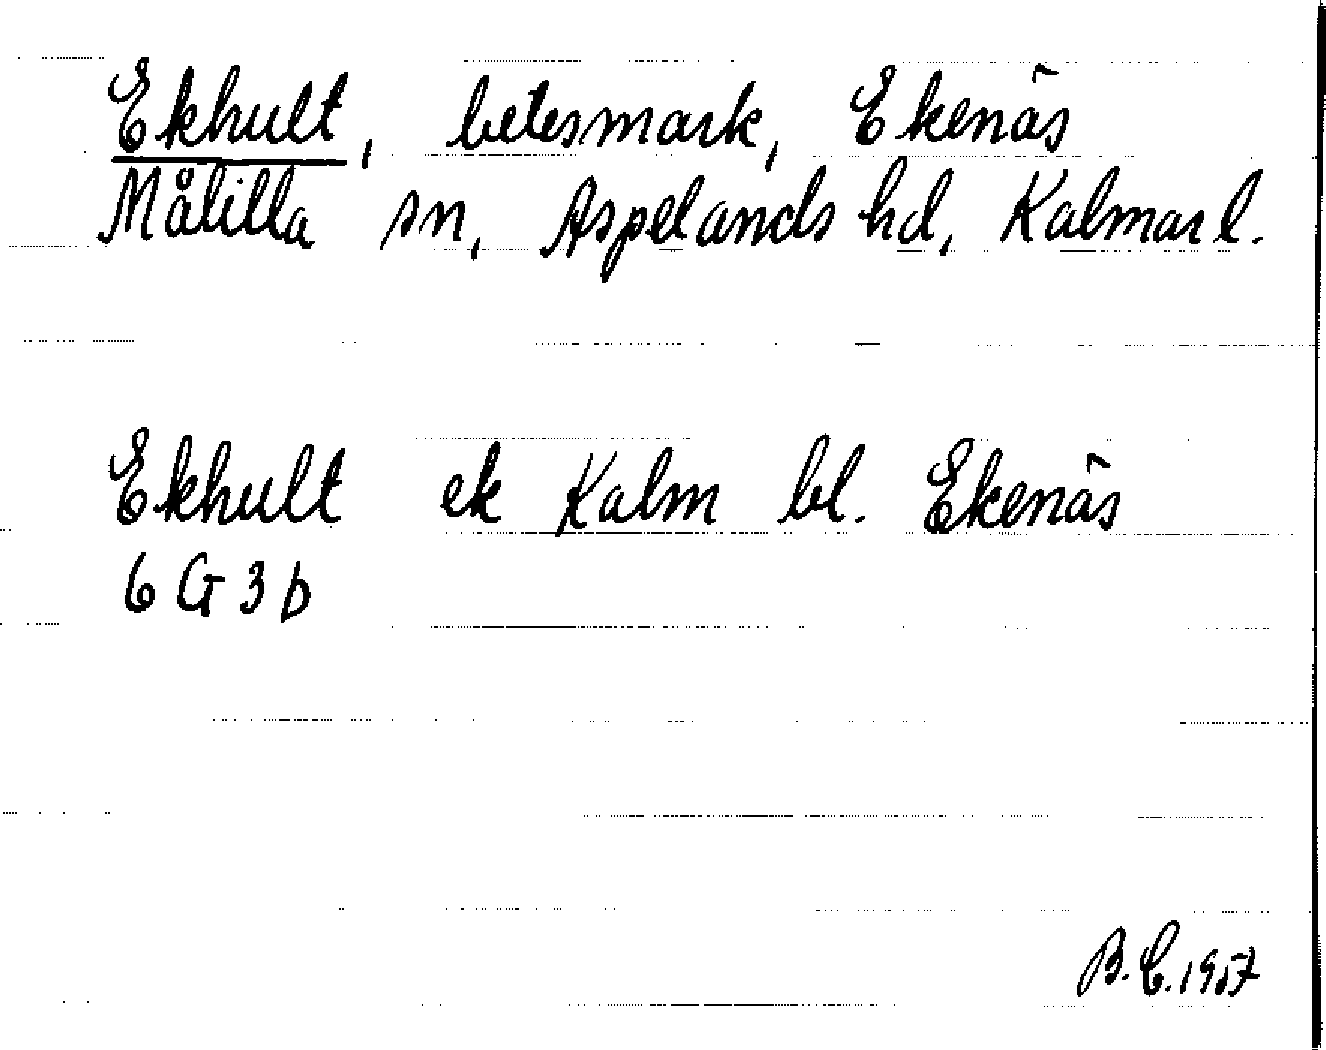 Ekhult, betesmark, Ekenäs
Målilla sn, Aspelands hd, Kalmar l.
Ekhult ek Kalm bl. Ekenäs
6 G 3 b
B. E. 1957